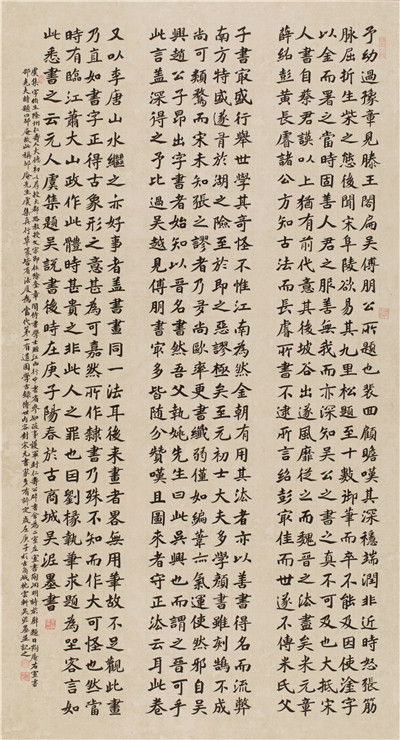 予幼過豫章見滕王閣扁吳傅朋公所題也裴回顧瞻嘆其深穩端潤非近時怒張筋
脈屈折生柴之態後聞宋阜陵欲易其九里松題至十數御筆而卒不能及因使塗字
以金而署之當時固善人君之服善無我而亦深知吳公之書之真不可及也大抵宋
人書自蔡君謨以上猶有前代意其後坡谷出遂風靡從之而魏晉之法盡矣米元章
薛紹彭黃長睿諸公方知古法而長睿所書不逮所言紹彭最佳而世遂不傳米氏父
子書最盛行舉世學其奇怪不惟江南為然金朝有用其法者亦以善書得名而流弊
南方特盛遂有于湖之險至於即之惡謬極矣至元初士大夫多學顏書雖刻鵠不成
尚可類鶩而宋末知張之謬者乃多尚歐率更書纖弱僅如編葦亦氣運使然邪自吳
興趙公子昂出字書者始知以晉名書然吾父執姚先生曰此吳興也而謂之晉可乎
此言蓋深得之予比過吳越見傅朋書最多皆隨分贊嘆且圖來者守正法云耳此卷
又以李唐山水繼之亦好事者蓋書畫同一法耳後來畫者略無用筆故不足觀此畫
乃直如書字正得古象形之意甚為可嘉然所作隸書乃殊不知而作大可怪也然當
時有臨江蕭大山政作此體時甚貴之非此人之罪也因劉椽執筆求題為坐客言如
此悉書之云元人虞集題吳說書後時在庚子陽春於古商城吳泥墨書
虞集字伯生